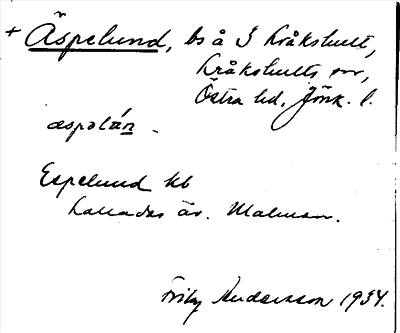 + Äspelund, bs å S Kråkshult,
Kråkshults sn,
Östra hd, Jönk. l.
æspəlún -
Espelund kb
kallades äv. Malmen.
Fritz Andersson 1934.